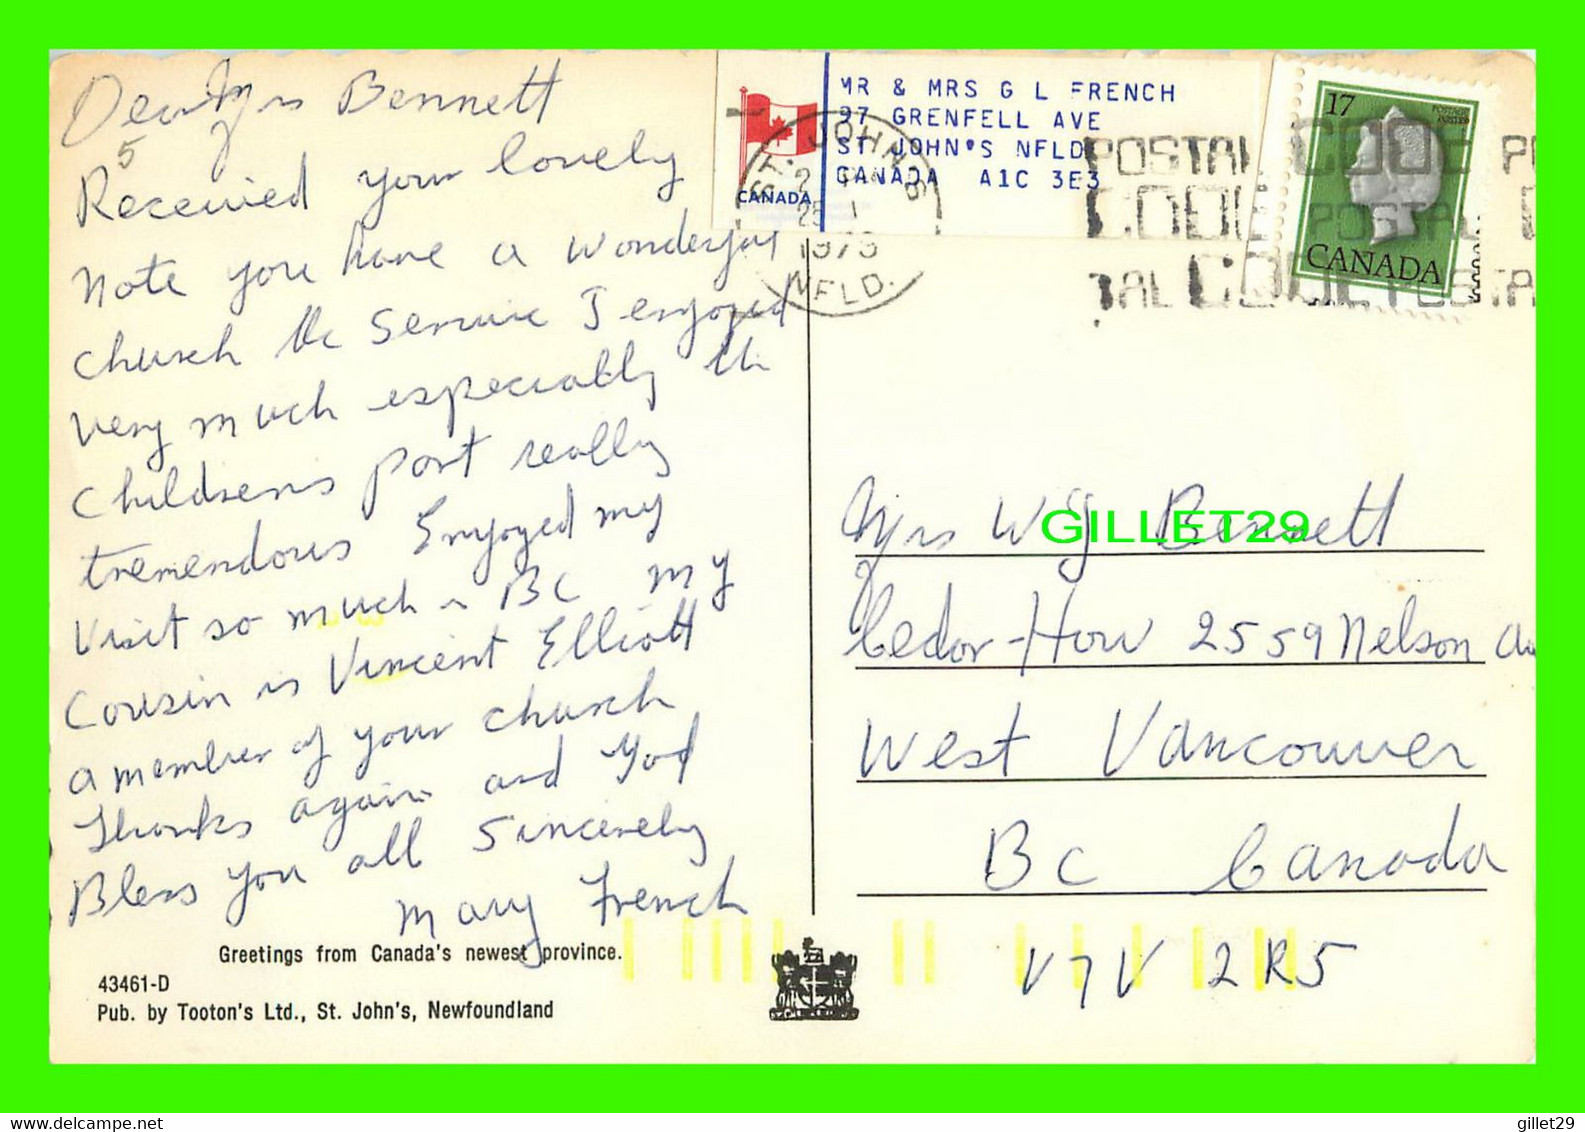 Dear Mrs Bennett
5
Received your lovely
note you have a wonderful
church the service I enjoyed
very much especially the
Childrens part really
tremendous Enjoyed my
Visit so much in BC my
Cousin is Vincent Elliott
a member of your church
Thanks again and God
Bless you all Sincerely
Mary French
Greetings from Canada's newest province.
43461-D
Pub. by Tooton's Ltd., St. John's, Newfoundland
CANADA
MR & MRS G L FRENCH
97 GRENFELL AVE
ST JOHN'S NFLD
CANADA A1C 3E3
ST. JOHN'S
1979
NFLD.
POSTAL CODE
CODE POSTAL
17
CANADA
GILLET29
Mrs W J Bennett
Cedar-How 2559 Nelson Av
West Vancouver
BC Canada
V7V 2R5
gillet29